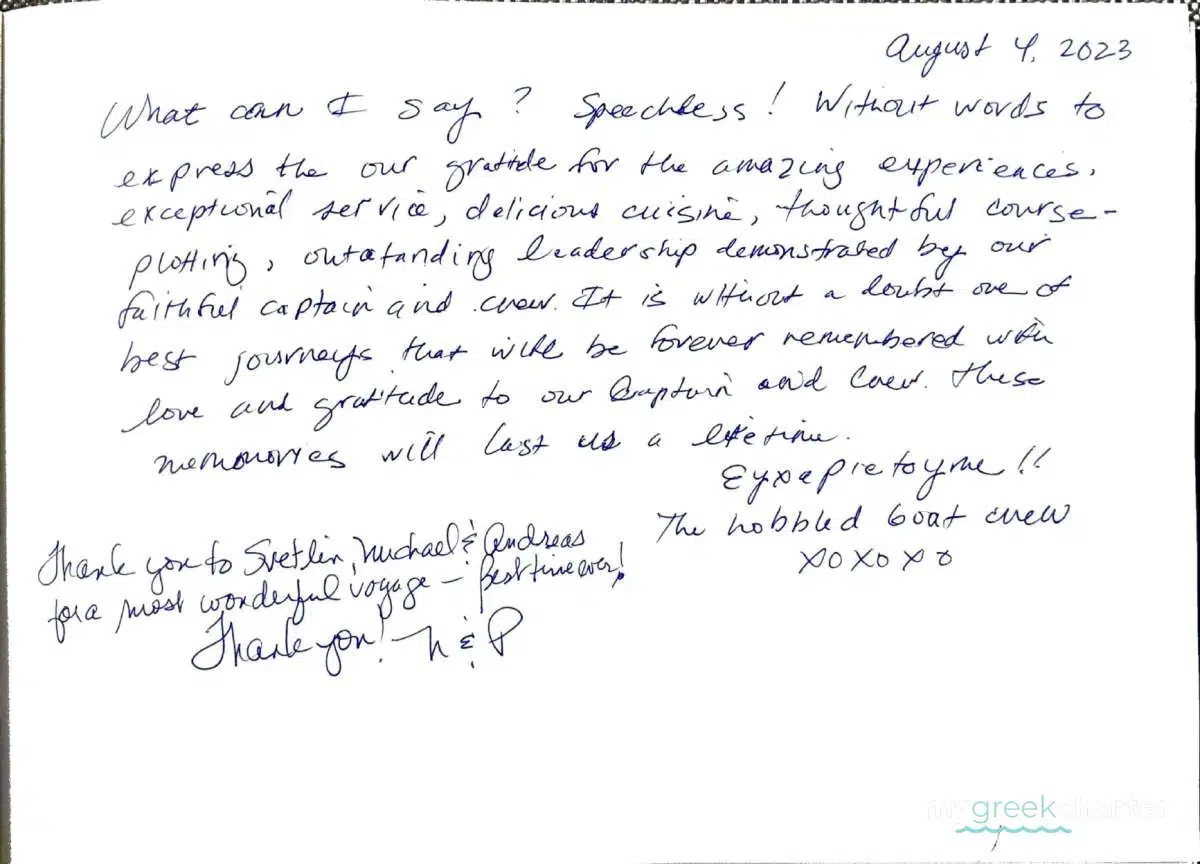 August 4, 2023
What can I say? Speechless! Without words to
express the our gratitde for the amazing experiences,
exceptional service, delicious cuisine, thoughtful course-
plotting, outstanding leadership demonstrated by our
faithful captain and crew. It is without a doubt one of
best journeys that will be forever remembered with
love and gratitude to our Captain and Crew. These
memories will last us a lifetime.
Ευχαριστούμε!!
The hobbled Goat crew
xoxoxo
Thank you to Svetlin, Michael & Andreas
for a most wonderful voyage — Best time ever!
Thank you! — N & P
mygreekcharter